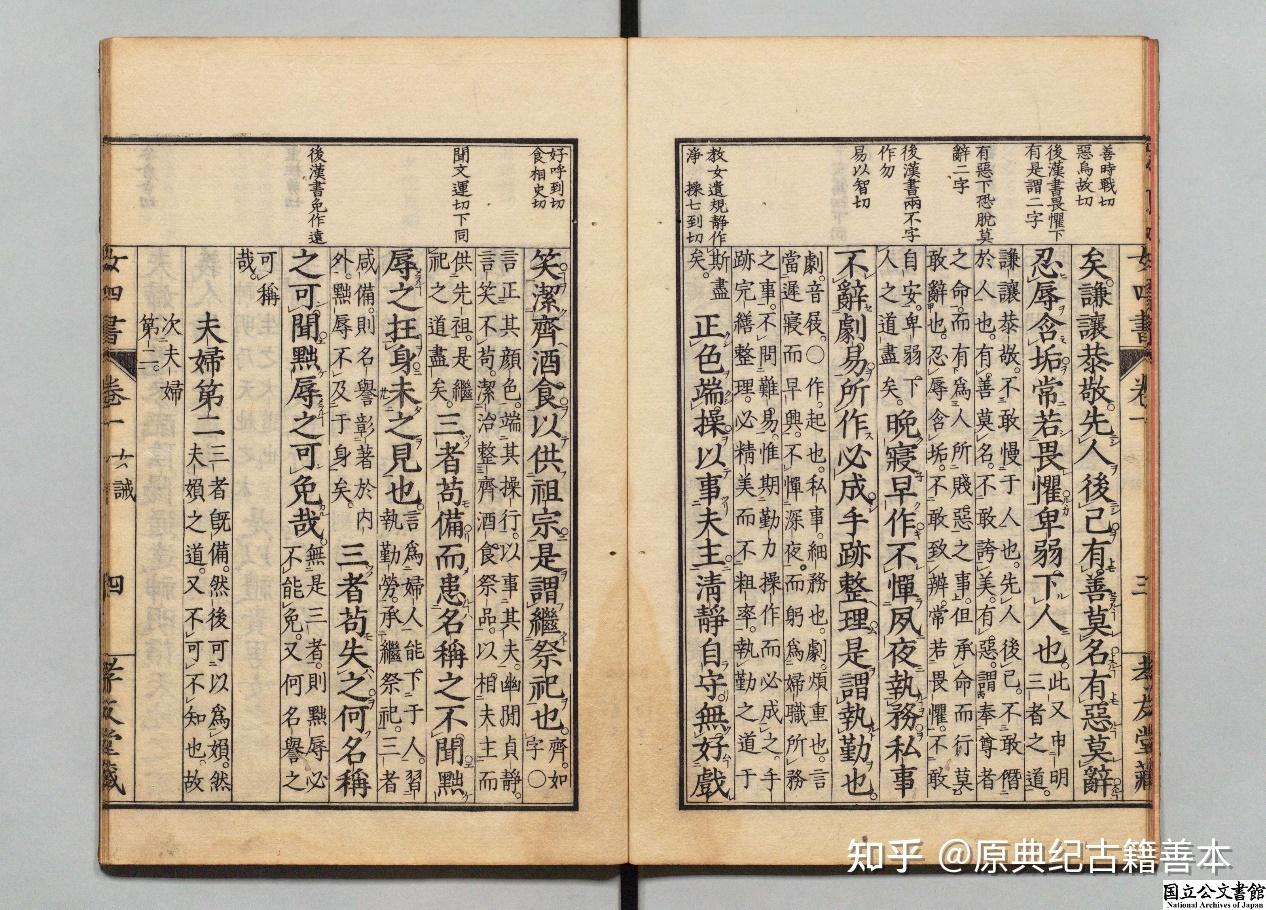 善時戰切
惡烏故切
後漢書畏懼下
有是謂二字
有惡下恐脫莫
辭二字
後漢書兩不字
作勿
易以智切
教女遺規靜作
淨 操七到切
矣。謙讓恭敬。先人後己。有善莫名。有惡莫辭
忍辱含垢。常若畏懼。卑弱下人也。此又申明
三者之道。
謙讓恭敬。不敢慢于人也。先人後已。不敢僭
於人也。有善莫名。不敢誇美。有惡。謂奉尊者
之命。而有爲人所賤惡之事。但承命而行。莫
敢辭也。忍辱含垢。不敢致辨。常若畏懼。不敢
自安。卑弱下
人之道盡矣。
晚寢早作。不憚夙夜。執務私事
不辭劇易。所作必成。手跡整理。是謂執勤也。
劇。音屐。〇作起也。私事。細務也。劇。煩重也。言
當遲寢而早興。不憚深夜。而躬爲婦職所務
之事。不問難易。惟期勤力操作而必成之。手
跡完繕整理。必精美而不粗率。執勤之道于
斯盡
矣。
正色端操。以事夫主。清靜自守。無好戲
女四書 卷一 三 孝友堂藏
好呼到切
食相史切
聞文運切下同
後漢書免作遠
笑。潔齊酒食。以供祖宗。是謂繼祭祀也。齊。如
字〇
言正其顏色。端其操行。以事其夫。幽閒貞靜。
言笑不苟。潔治整齊酒食祭品。以相夫主。而
供先祖。是繼
祀之道盡矣。
三者苟備。而患名稱之不聞。黜
辱之在身。未之見也。言爲婦人能下于人。習
執勤勞。承繼祭祀。三者
咸備。則名譽彰著於內
外。黜辱不及于身矣。
三者苟失之。何名稱
之可聞。黜辱之可免哉。無是三者。則黜辱必
不能免。又何名譽之
可稱
哉。
夫婦第二三者既備。然後可以爲嬪。然
夫嬪之道。又不可不知也。故
次夫婦
第二。
女四書 卷一 女誡 四 孝友堂藏
知乎 @原典纪古籍善本
国立公文書館
National Archives of Japan